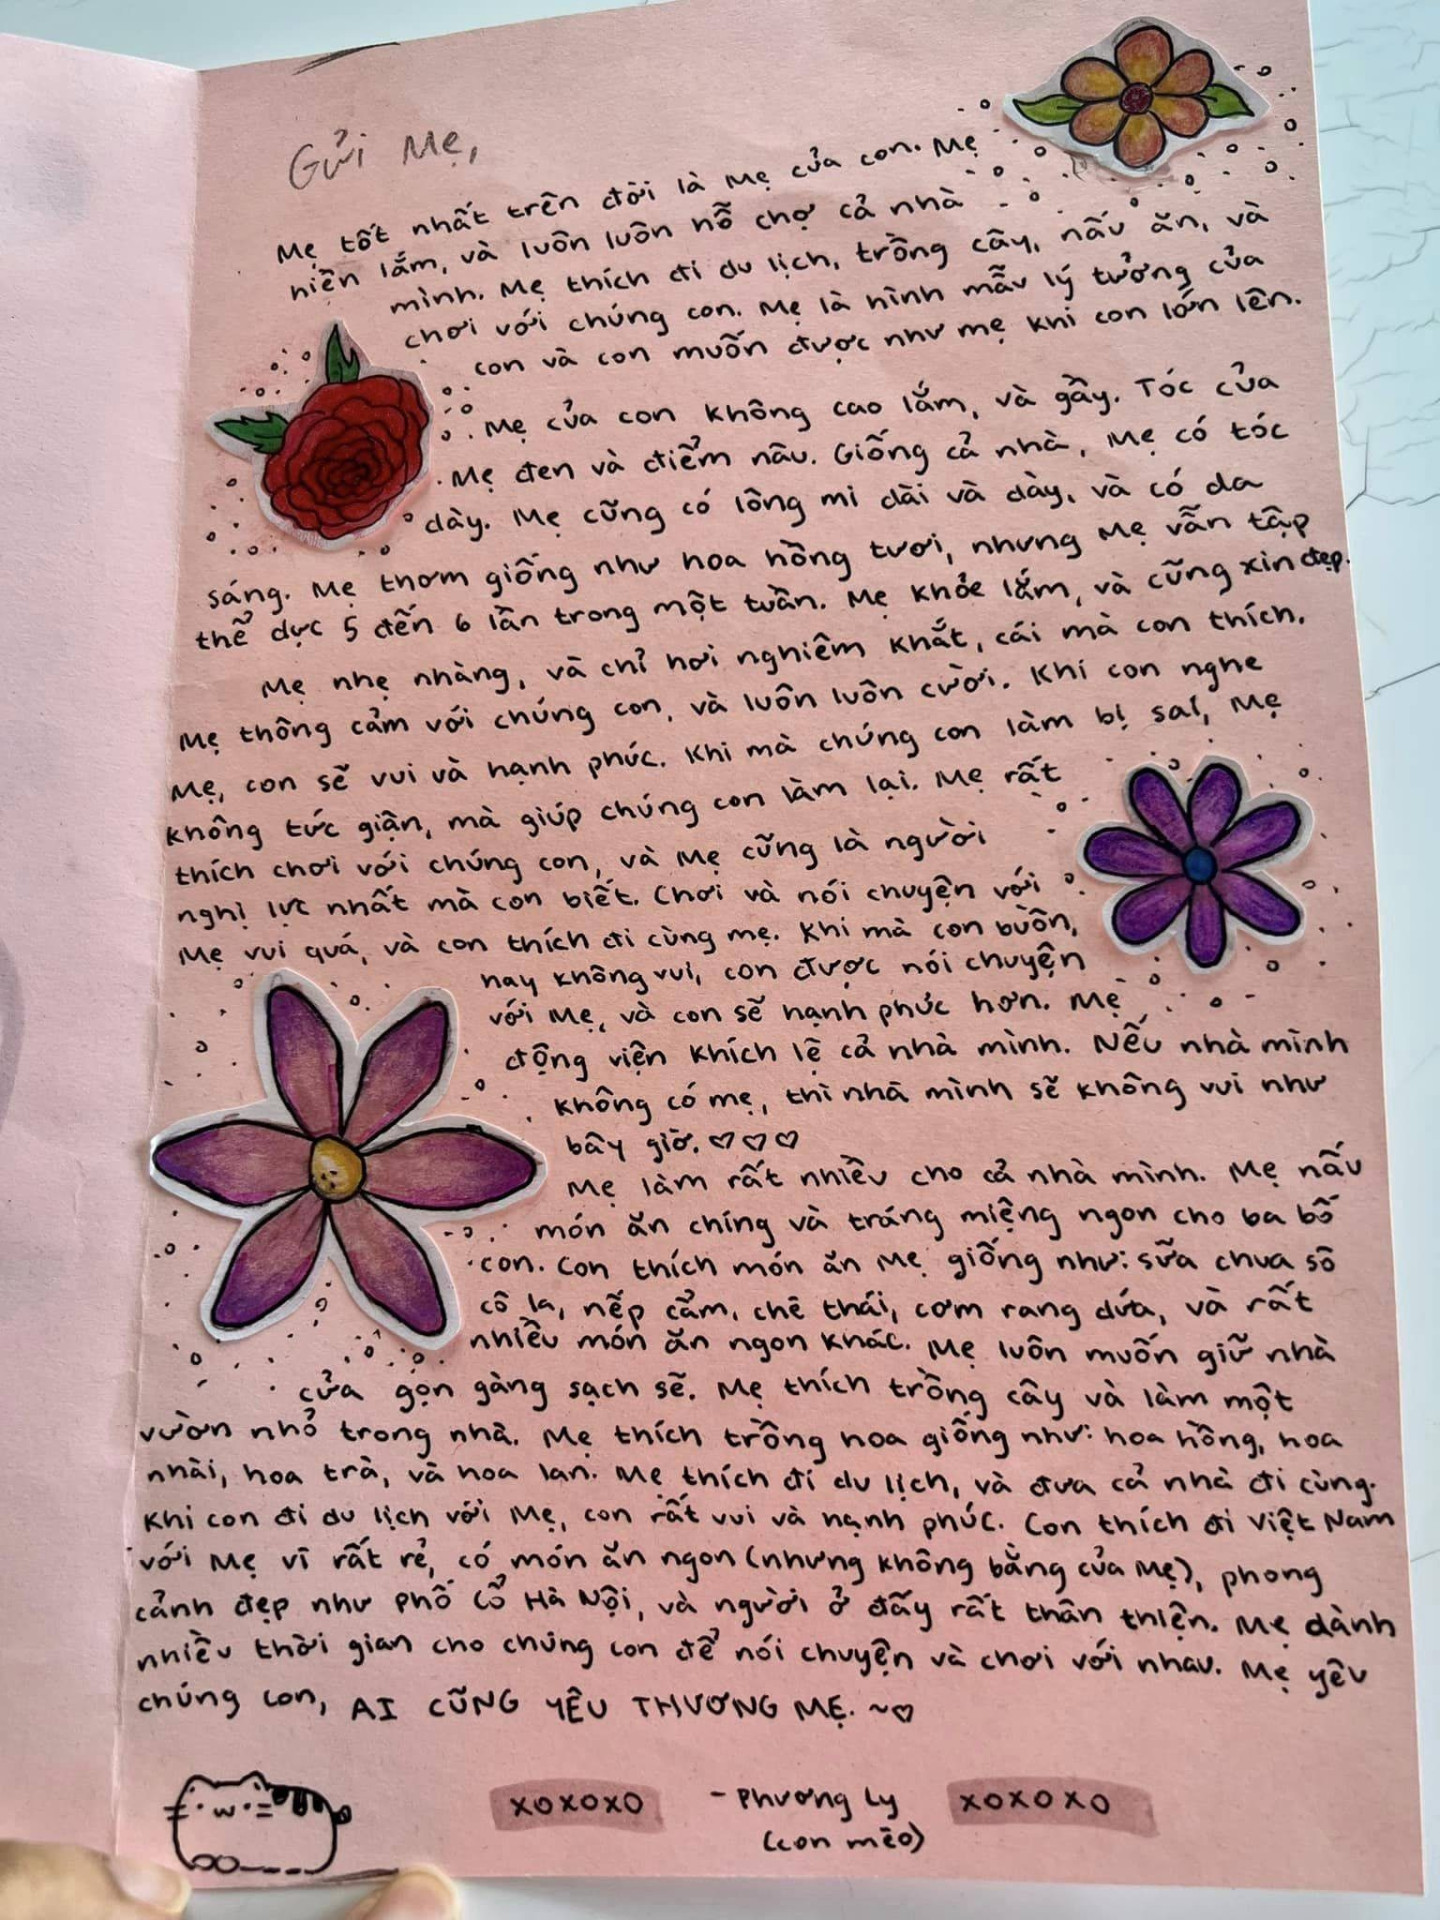 Gửi Mẹ,
Mẹ tốt nhất trên đời là Mẹ của con. Mẹ
hiền lắm, và luôn luôn hỗ chợ cả nhà
mình. Mẹ thích đi du lịch, trồng cây, nấu ăn, và
chơi với chúng con. Mẹ là hình mẫu lý tưởng của
con và con muốn được như mẹ khi con lớn lên.
Mẹ của con không cao lắm, và gầy. Tóc của
Mẹ đen và điểm nâu. Giống cả nhà, Mẹ có tóc
dày. Mẹ cũng có lông mi dài và dày, và có da
sáng. Mẹ thơm giống như hoa hồng tươi, nhưng Mẹ vẫn tập
thể dực 5 đến 6 lần trong một tuần. Mẹ khỏe lắm, và cũng xin đẹp.
Mẹ nhẹ nhàng, và chỉ hơi nghiêm khắt, cái mà con thích.
Mẹ thông cảm với chúng con, và luôn luôn cười. Khi con nghe
Mẹ, con sẽ vui và hạnh phúc. Khi mà chúng con làm bị sai, Mẹ
không tức giận, mà giúp chúng con làm lại. Mẹ rất
thích chơi với chúng con, và Mẹ cũng là người
nghị lực nhất mà con biết. Chơi và nói chuyện với
Mẹ vui quá, và con thích đi cùng mẹ. Khi mà con buồn,
hay không vui, con được nói chuyện
với Mẹ, và con sẽ hạnh phúc hơn. Mẹ
động viện khích lệ cả nhà mình. Nếu nhà mình
không có mẹ, thì nhà mình sẽ không vui như
bây giờ. ♡♡♡
Mẹ làm rất nhiều cho cả nhà mình. Mẹ nấu
món ăn chính và tráng miệng ngon cho ba bố
con. Con thích món ăn Mẹ giống như: sữa chua sô
cô la, nếp cẩm, chè thái, cơm rang dứa, và rất
nhiều món ăn ngon khác. Mẹ luôn muốn giữ nhà
cửa gọn gàng sạch sẽ. Mẹ thích trồng cây và làm một
vườn nhỏ trong nhà. Mẹ thích trồng hoa giống như: hoa hồng, hoa
nhài, hoa trà, và hoa lan. Mẹ thích đi du lịch, và đưa cả nhà đi cùng.
Khi con đi du lịch với Mẹ, con rất vui và hạnh phúc. Con thích đi Việt Nam
với Mẹ vì rất rẻ, có món ăn ngon (nhưng không bằng của Mẹ), phong
cảnh đẹp như Phố Cổ Hà Nội, và người ở đấy rất thân thiện. Mẹ dành
nhiều thời gian cho chúng con để nói chuyện và chơi với nhau. Mẹ yêu
chúng con, AI CŨNG YÊU THƯƠNG MẸ. ~♡
XOXOXO - Phương Ly XOXOXO
(con mèo)